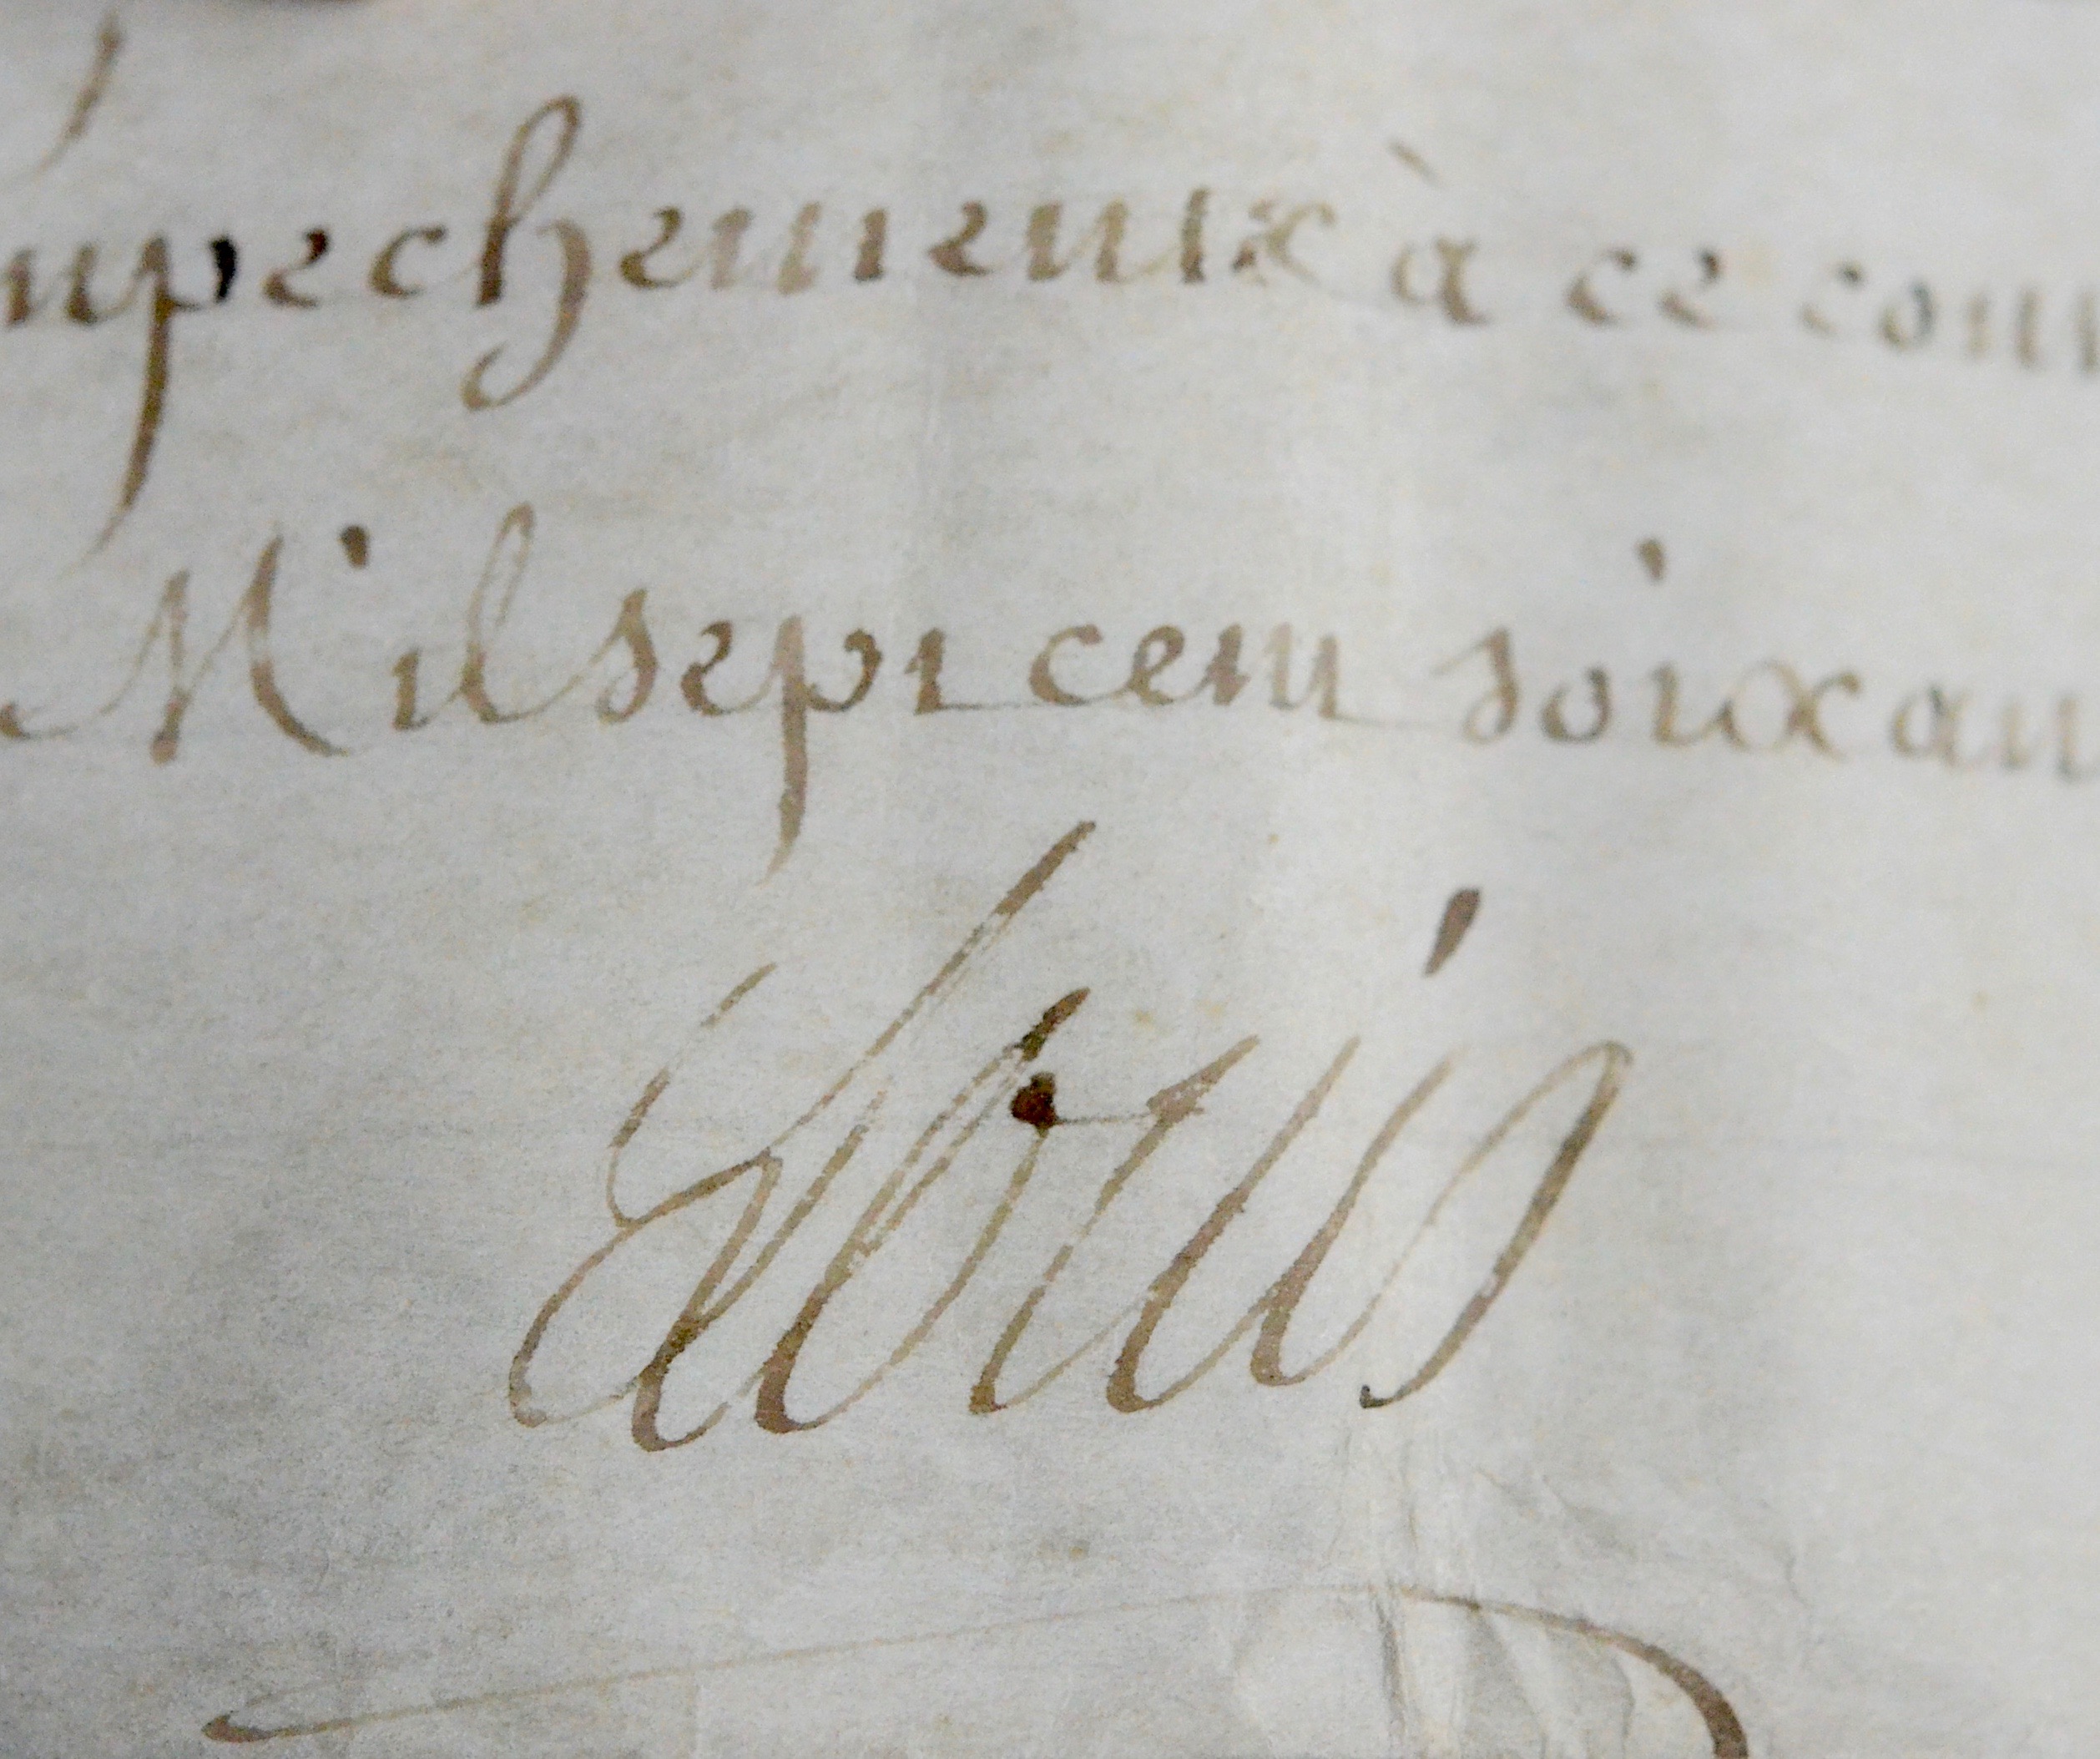 mpechemens à ce cont
Mil sept cent soixan
Louis